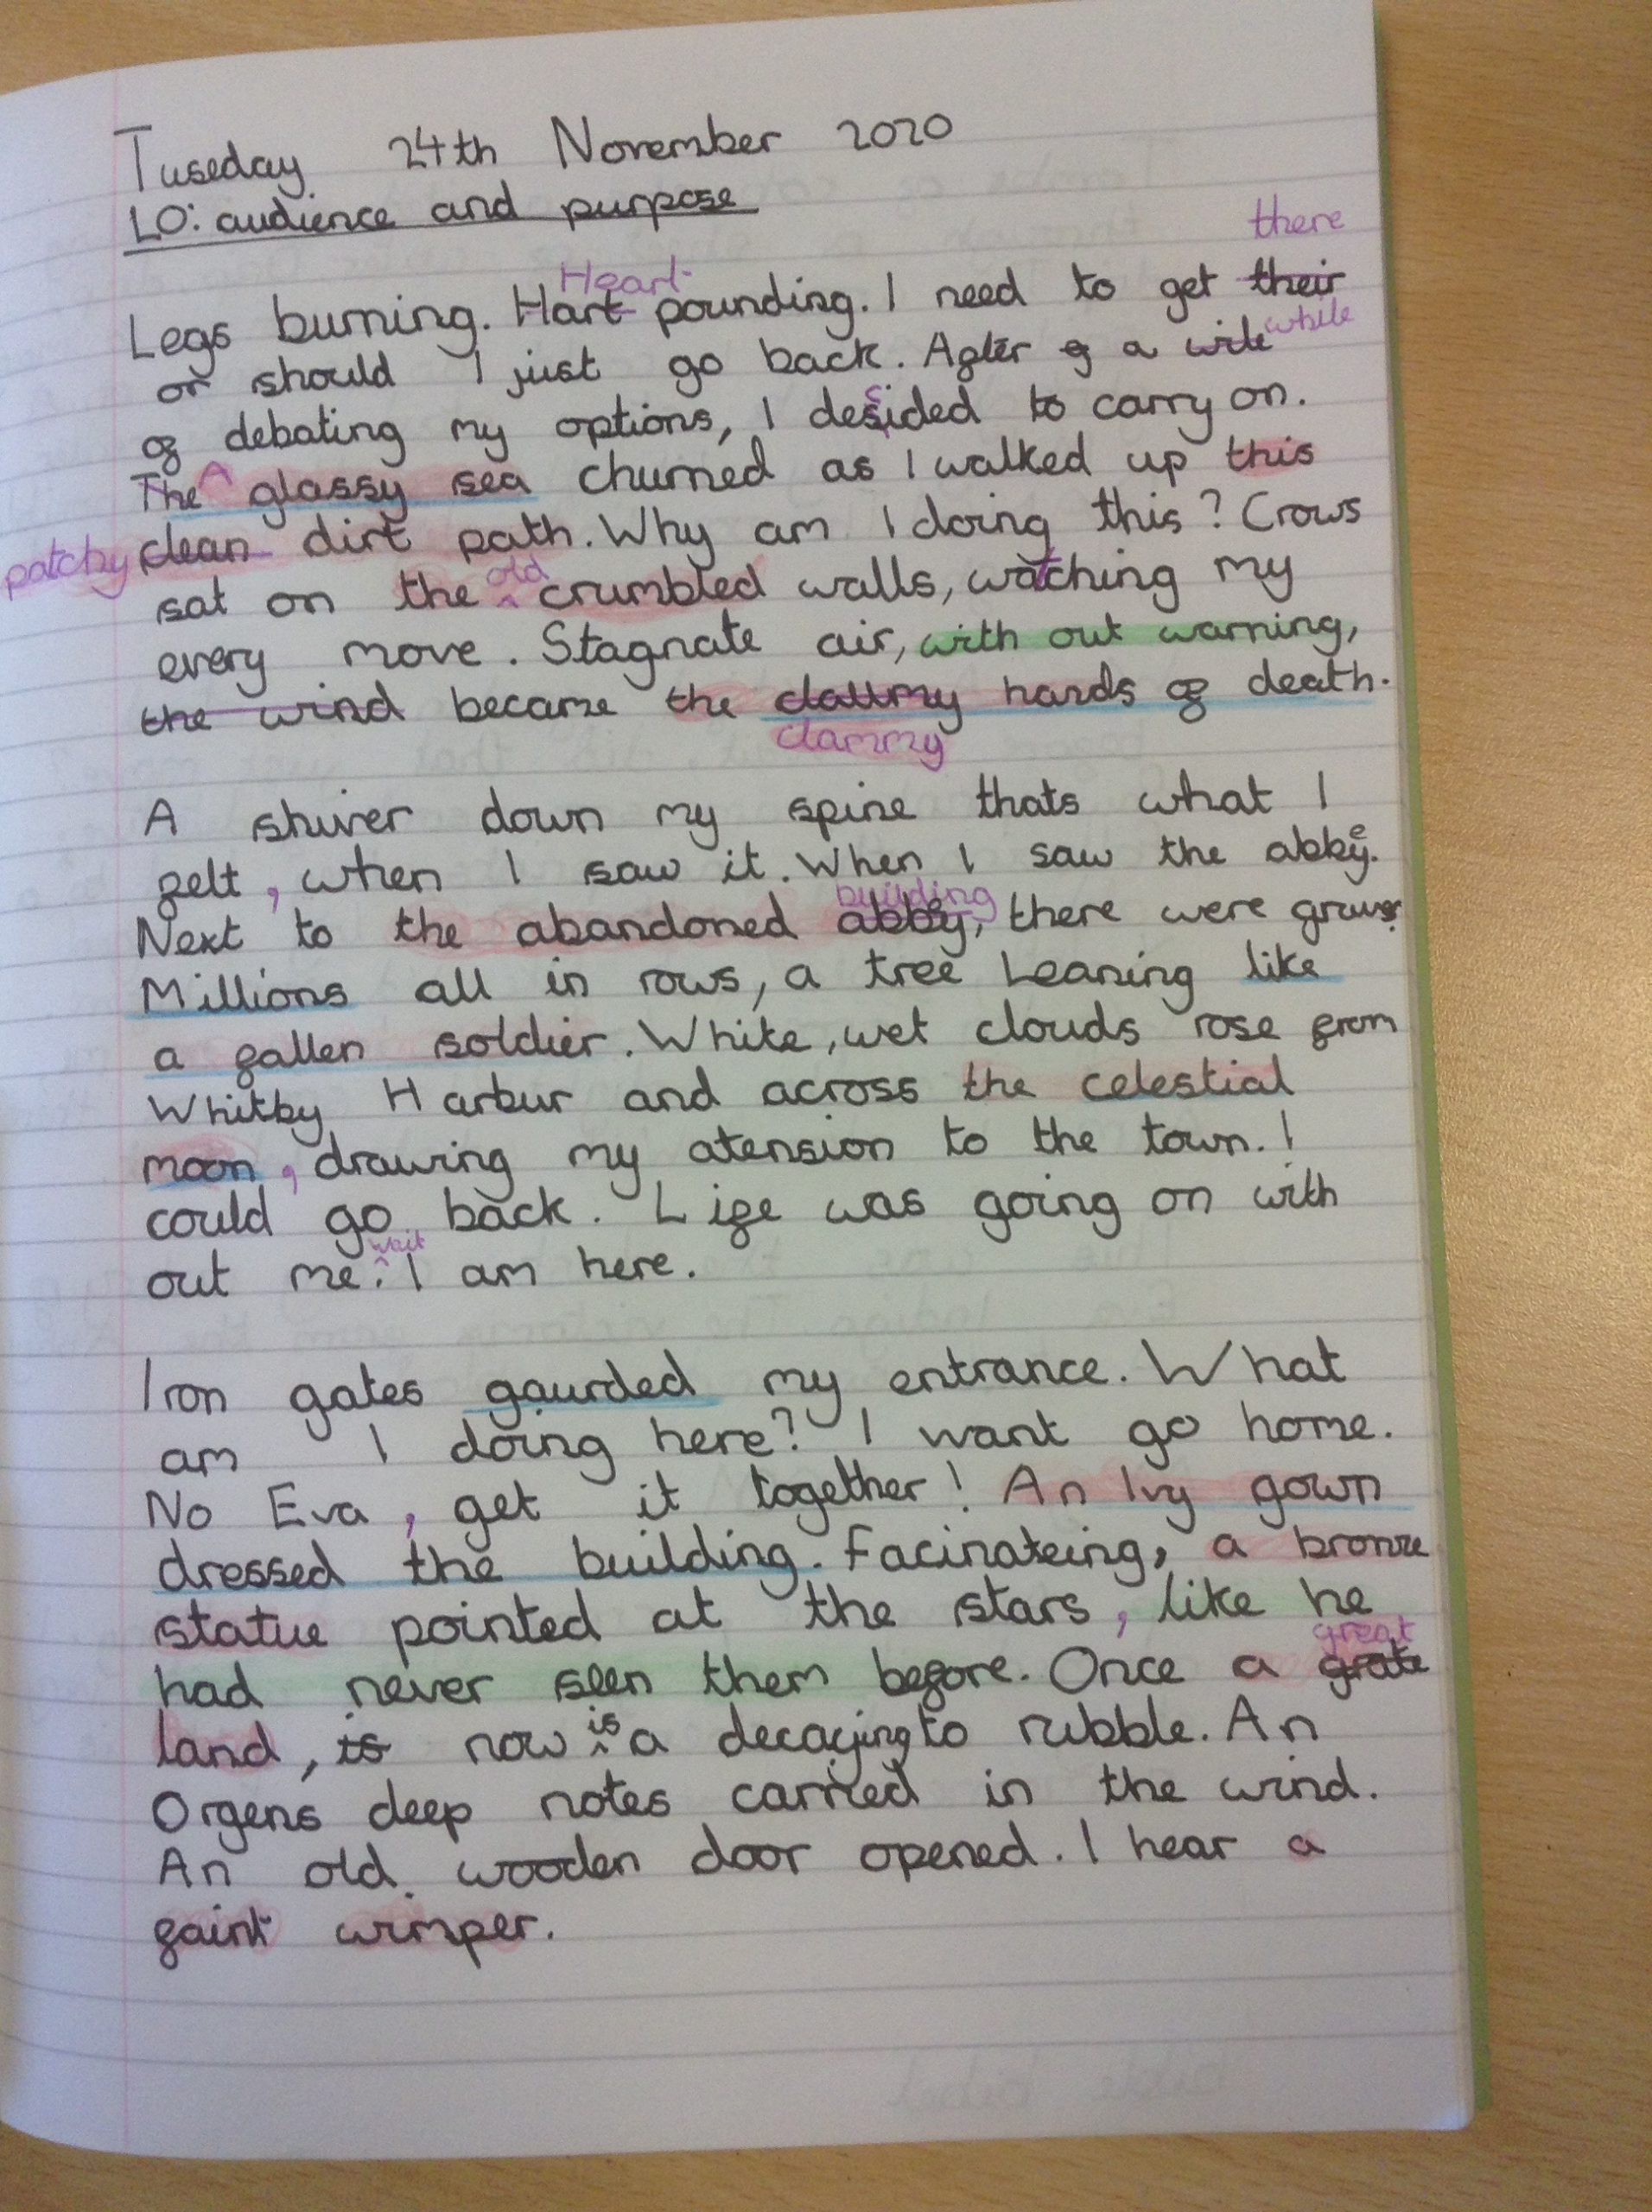 Tuseday 24th November 2020
LO: audience and purpose
there
Heart
Legs burning. Hart pounding. I need to get their
or should I just go back. After of a wile while
of debating my options, I desided to carry on.
The A glassy sea churned as I walked up this
patchy clean dirt path. Why am I doing this? Crows
sat on the old crumbled walls, watching my
every move. Stagnate air, with out warning,
the wind became the clattmy hands of death.
clammy
A shiver down my spine thats what I
felt, when I saw it. When I saw the abbey.
building
Next to the abandoned abbey, there were graves.
Millions all in rows, a tree Leaning like
a fallen soldier. White, wet clouds rose from
Whitby Harbur and across the celestial
moon, drawing my atension to the town. I
could go back. Life was going on with
out me. wait I am here.
Iron gates gaurded my entrance. What
am I doing here? I want go home.
No Eva, get it together! An Ivy gown
dressed the building. Facinateing, a bronze
statue pointed at the stars, like he
great
had never seen them before. Once a grate
land, is now is a decaying to rubble. An
Orgens deep notes carried in the wind.
An old, wooden door opened. I hear a
faint wimper.